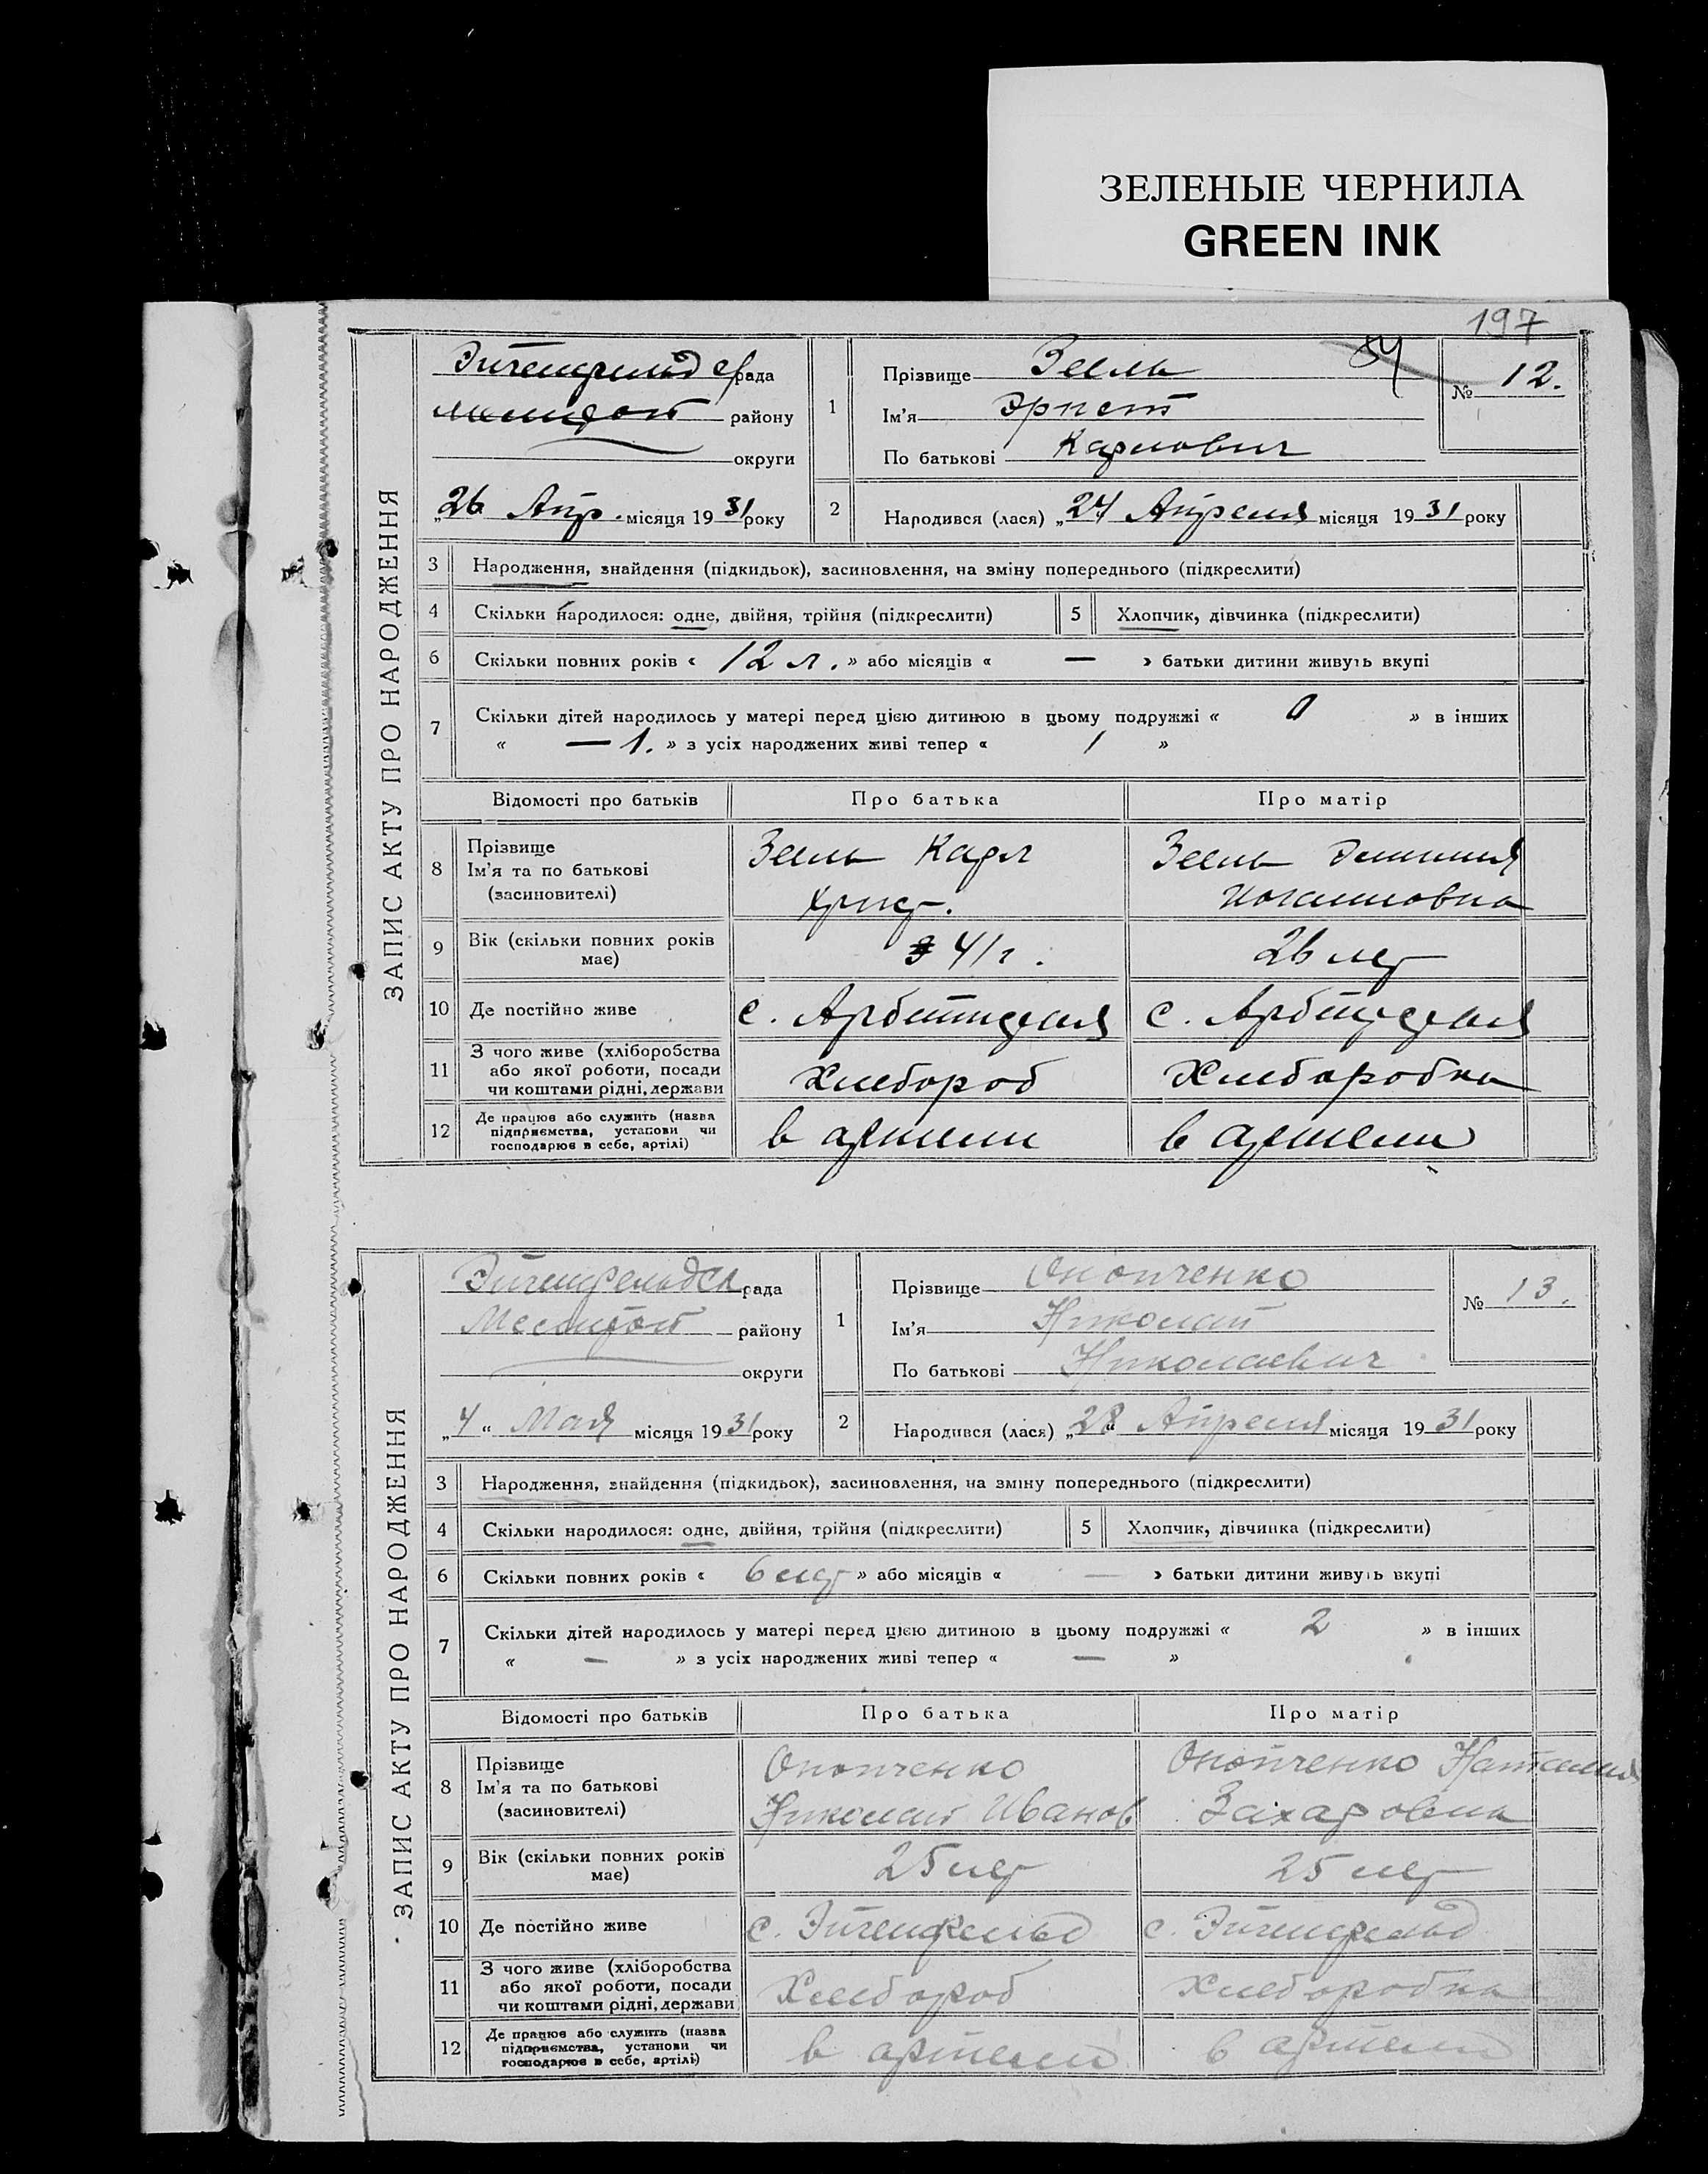 ЗЕЛЕНЫЕ ЧЕРНИЛА
GREEN INK
197
ЗАПИС АКТУ ПРО НАРОДЖЕННЯ
рада
району
округи
„26 Апр. місяця 1931 року
1
Прізвище Зеель
Ім'я Эрнест
По батькові Карлович
84
№ 12.
2
Народився (лася) „24 Апреля місяця 1931 року
3 Народження, знайдення (підкидьок), засиновлення, на зміну попереднього (підкреслити)
4 Скільки народилося: одне, двійня, трійня (підкреслити) 5 Хлопчик, дівчинка (підкреслити)
6 Скільки повних років « 12 л. » або місяців « — » батьки дитини живуть вкупі
7 Скільки дітей народилось у матері перед цією дитиною в цьому подружжі « 0 » в інших
« — 1. » з усіх народжених живі тепер « 1 »
Відомості про батьків Про батька Про матір
8 Прізвище
Ім'я та по батькові
(засиновителі)
Зеель Карл
Христ.
Зеель
Иогановна
9 Вік (скільки повних років
має)
41 г.
26 лет
10 Де постійно живе
с.
с.
11 З чого живе (хліборобства
або якої роботи, посади
чи коштами рідні, держави
Хлебороб
Хлеборобка
12 Де працює або служить (назва
підприємства, установи чи
господарює в себе, артілі)
в артели
в артели
ЗАПИС АКТУ ПРО НАРОДЖЕННЯ
рада
району
округи
„4" Мая місяця 1931 року
1
Прізвище Онопченко
Ім'я Николай
По батькові Николаевич
№ 13.
2
Народився (лася) „28" Апреля місяця 1931 року
3 Народження, знайдення (підкидьок), засиновлення, на зміну попереднього (підкреслити)
4 Скільки народилося: одне, двійня, трійня (підкреслити) 5 Хлопчик, дівчинка (підкреслити)
6 Скільки повних років « 6 лет » або місяців « — » батьки дитини живуть вкупі
7 Скільки дітей народилось у матері перед цією дитиною в цьому подружжі « 2 » в інших
« — » з усіх народжених живі тепер « — »
Відомості про батьків Про батька Про матір
8 Прізвище
Ім'я та по батькові
(засиновителі)
Онопченко
Николай Иванов
Онопченко Наталия
Захаровна
9 Вік (скільки повних років
має)
25 лет
25 лет
10 Де постійно живе
с. Эйгенфельд
с. Эйгенфельд
11 З чого живе (хліборобства
або якої роботи, посади
чи коштами рідні, держави
Хлебороб
Хлеборобка
12 Де працює або служить (назва
підприємства, установи чи
господарює в себе, артілі)
в артели
в артели